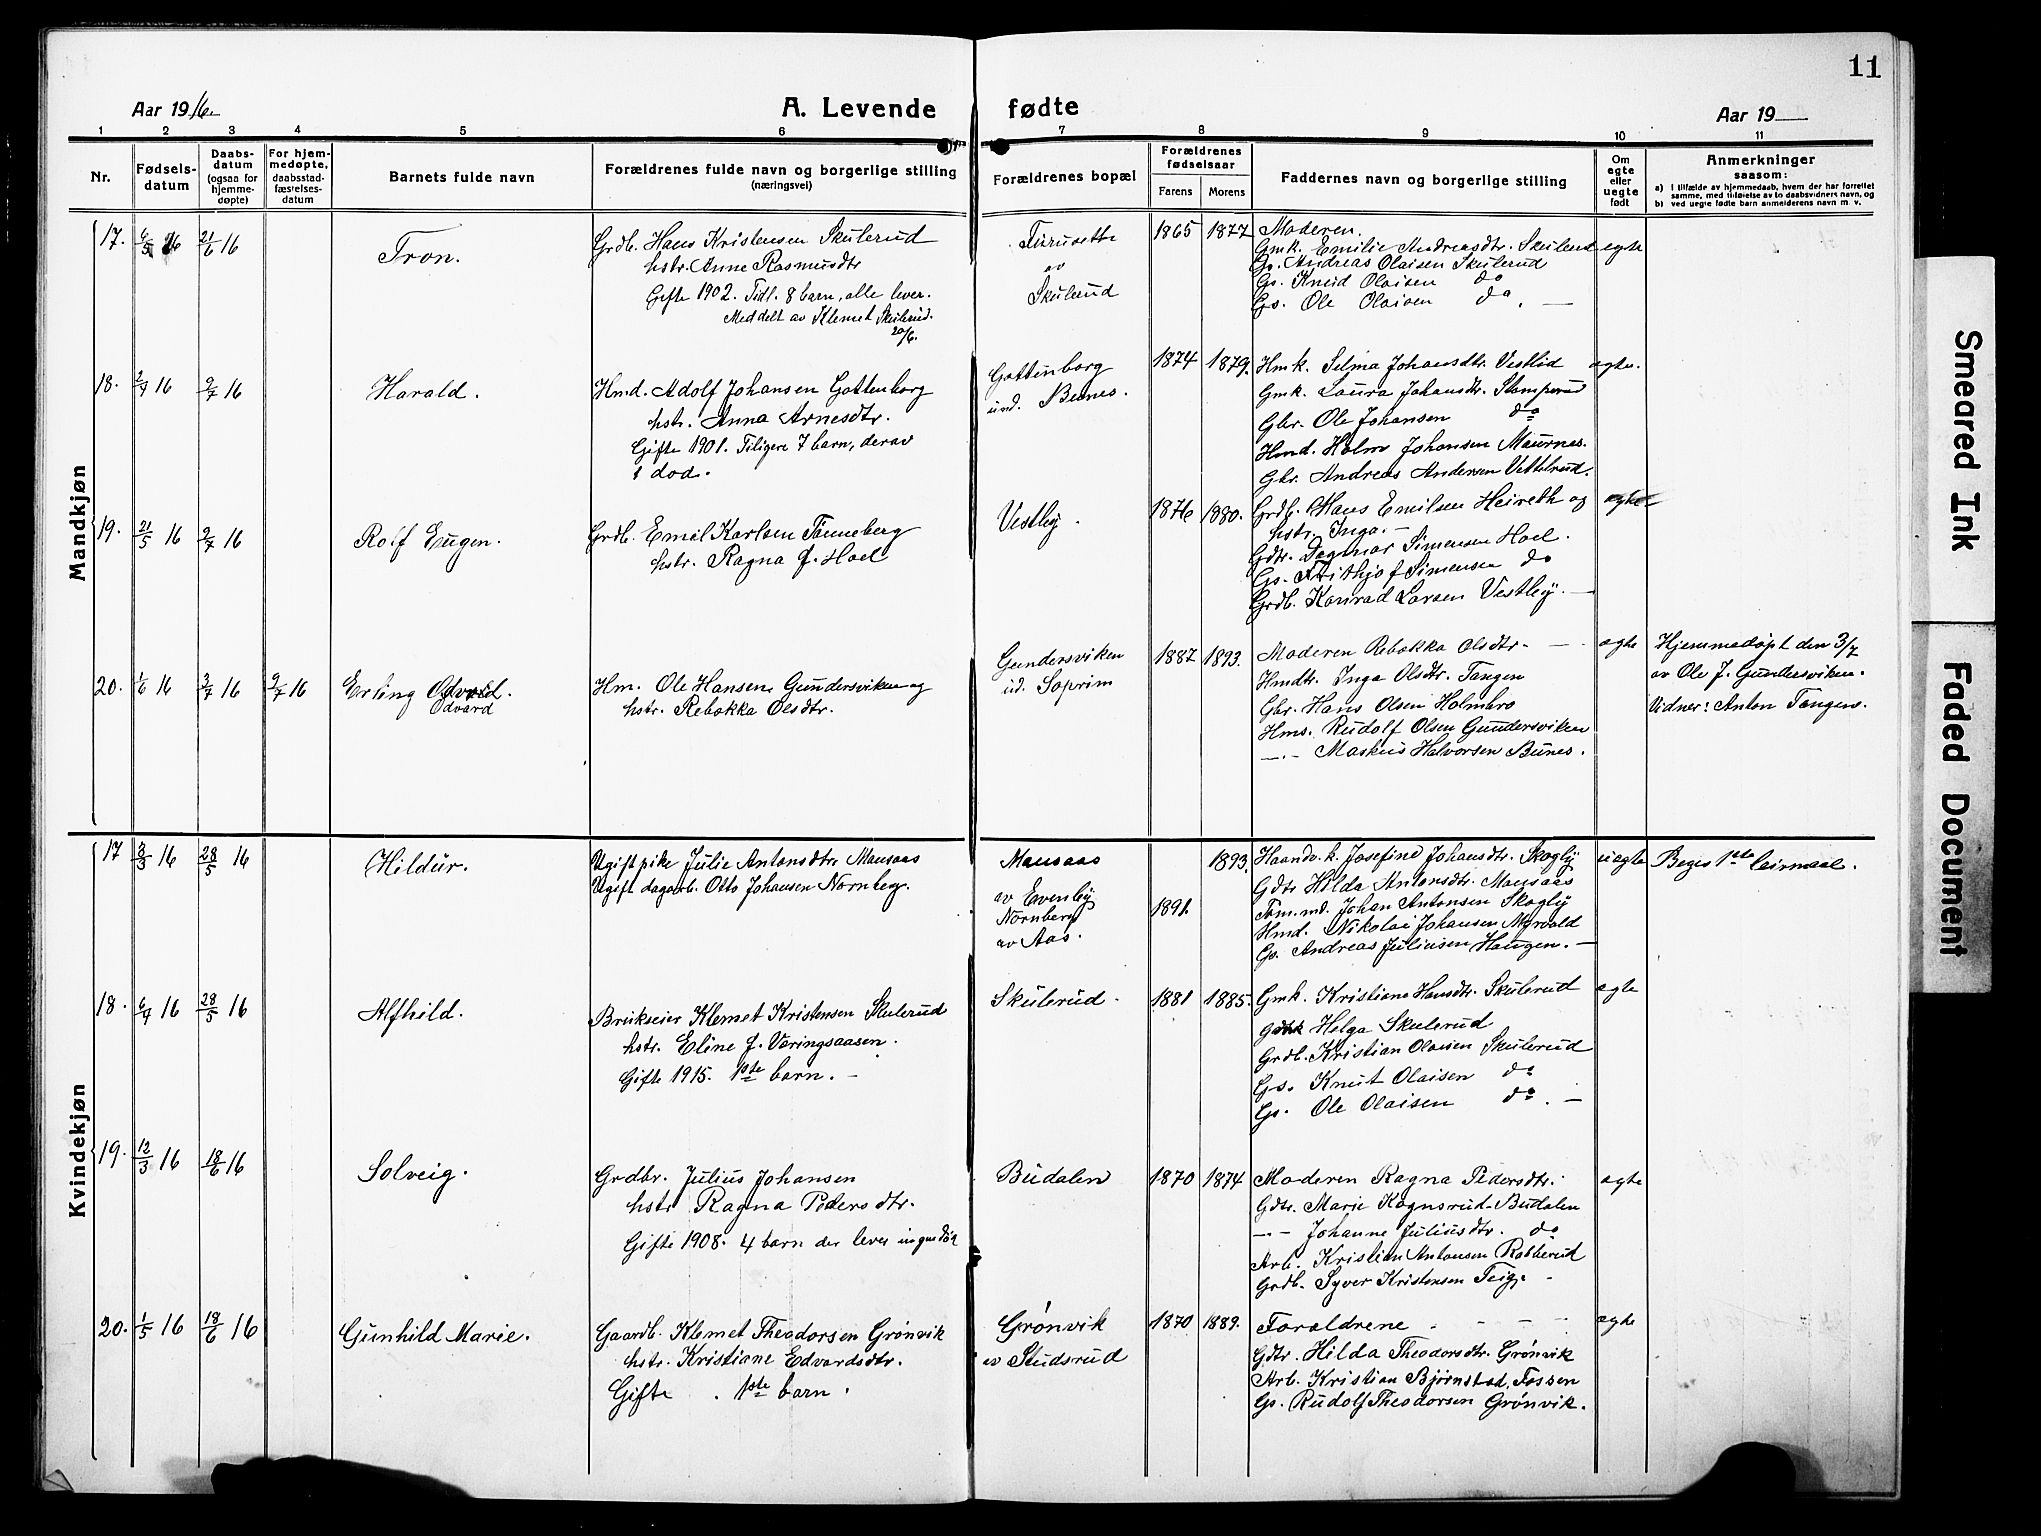 11
Aar 1916.
A. Levende fødte
Aar 19
1 2 3 4 5 6 7 8 9 10 11
Nr.
Fødsels-
datum
Daabs-
datum
(ogsaa for
hjemme-
døpte)
For hjem-
medøpte,
daabsstad-
fæstelses-
datum
Barnets fulde navn
Forældrenes fulde navn og borgerlige stilling
(næringsvei)
Forældrenes bopæl
Forældrenes
fødselsaar
Farens
Morens
Faddernes navn og borgerlige stilling
Om
egte
eller
uegte
født
Anmerkninger
saasom:
a) i tilfælde av hjemmedaab, hvem der har forrettet
samme, med tilføielse av to daabsvidners navn, og
b) ved uegte fødte barn anmelderens navn m. v.
Mandkjøn
17. 16 21/6 16
Tron.
Grdb. Hans Kristensen Skulerud
hstr. Anne Rasmusdtr
Gifte 1902. Tidl. 8 barn, alle lever.
Meddelt av Klemet Skulerud.
20/6.
Furusette
av
Skulerud
1865 1877
Moderen.
Gmk. Emilie Andreasdtr. Skulerud
Gs. Andreas Olaisen Skulerud
Gs. Knud Olaisen do
Gs. Ole Olaisen do. —
egte
18. 2/4 16 2/7 16
Harald.
Hmd. Adolf Johansen Gottenborg
hstr. Anna Arnesdtr.
Gifte 1901. Tiligere 7 barn, derav
1 dod.
Gottenborg
und. Bunes.
1874 1879.
Hmk. Selma Johansdtr. Vestlid
Gmk. Laura Johansdtr. Stamperud
Gbr. Ole Johansen do
Hmd. Holm Johansen Maurnes.
Gbr. Andreas Andersen Vettelrud.
egte.
19. 21/5 16 2/7 16
Rolf Eugen.
Grdb. Emil Karlsen Tønneberg
hstr. Ragna f. Hoel
Vestby.
1876 1880.
Grdb. Hans Emilsen Heireth og
hstr. Inga. —
Gdtr. Dagmar Simensen Hoel.
Gs. Frithjof Simensen do
Grdb. Konrad Larsen Vestby. —
egte
20. 1/6 16 3/7 16 2/7 16
Erling Odvald.
Odvard
Hm. Ole Hansen Gundersviken og
hstr. Rebekka Olsdtr.
Gundersviken
ud. Soprim
1887 1893.
Moderen Rebekka Olsdtr. —
Hmdtr. Inga Olsdtr. Tangen
Gbr. Hans Olsen Holmbro
Hms. Rudolf Olsen Gundersviken
—.— Maskus Halvorsen Bunes.
egte
Hjemmedøpt den 3/7
av Ole J. Gundersviken.
Vidner: Anton Tangen.
Kvindekjøn
17 3/3 16 28/5 16
Hildur.
Ugift pike Julie Antonsdtr. Mausaas
Ugift dagarb. Otto Johansen Nornberg.
Mausaas
av Evenby
Nornberg
av Aas.
1893.
1891.
Haandv. k. Josefine Johansdtr. Skogly
Gdtr Hilda Antonsdtr. Mausaas
Tøm. md. Johan Antonsen Skogly
Hmd. Nikolai Johansen Myrvold
Gs. Andreas Juliusen Haugen. —
uegte
Beges 1ste leirmaal.
18. 6/4 16 28/5 16
Alfhild.
Brukseier Klemet Kristensen Skulerud
hstr. Eline f. Væringsaasen.
Gifte 1915. 1ste barn. —
Skulerud.
1881 1885.
Gmk. Kristiane Hansdtr. Skulerud
Helga Skulerud
Grdb. Kristian Olaisen Skulerud
Gs. Knut Olaisen do
Gs. Ole Olaisen do. —
egte
19. 12/3 16 18/6 16
Solveig.
Grdbr. Julius Johansen
hstr Ragna Pedersdtr.
Gifte 1908. 4 barn der lever ingen død
Budalen
1870 1874
Moderen Ragna Pedersdtr.
Gdtr. Marie Kognsrud-Budalen
—.— Johanne Juliusdtr. do
Arb. Kristian Antonsen Rabberud
Grdb. Syver Kristensen Teig. -
egte
20. 1/5 16 18/6 16
Gunhild Marie.
Gaardb. Klemet Theodorsen Grønvik
hstr. Kristiane Edvardsdtr.
Gifte . 1ste barn.
Grønvik
av Studsrud
1870 1889.
Foraldrene - - - -
Gdtr. Hilda Theodorsdtr. Grønvik
Arb. Kristian Bjørnstad, Fossen
Gs. Rudolf Theodorsen Grønvik.
egte
Smeared Ink
Faded Document